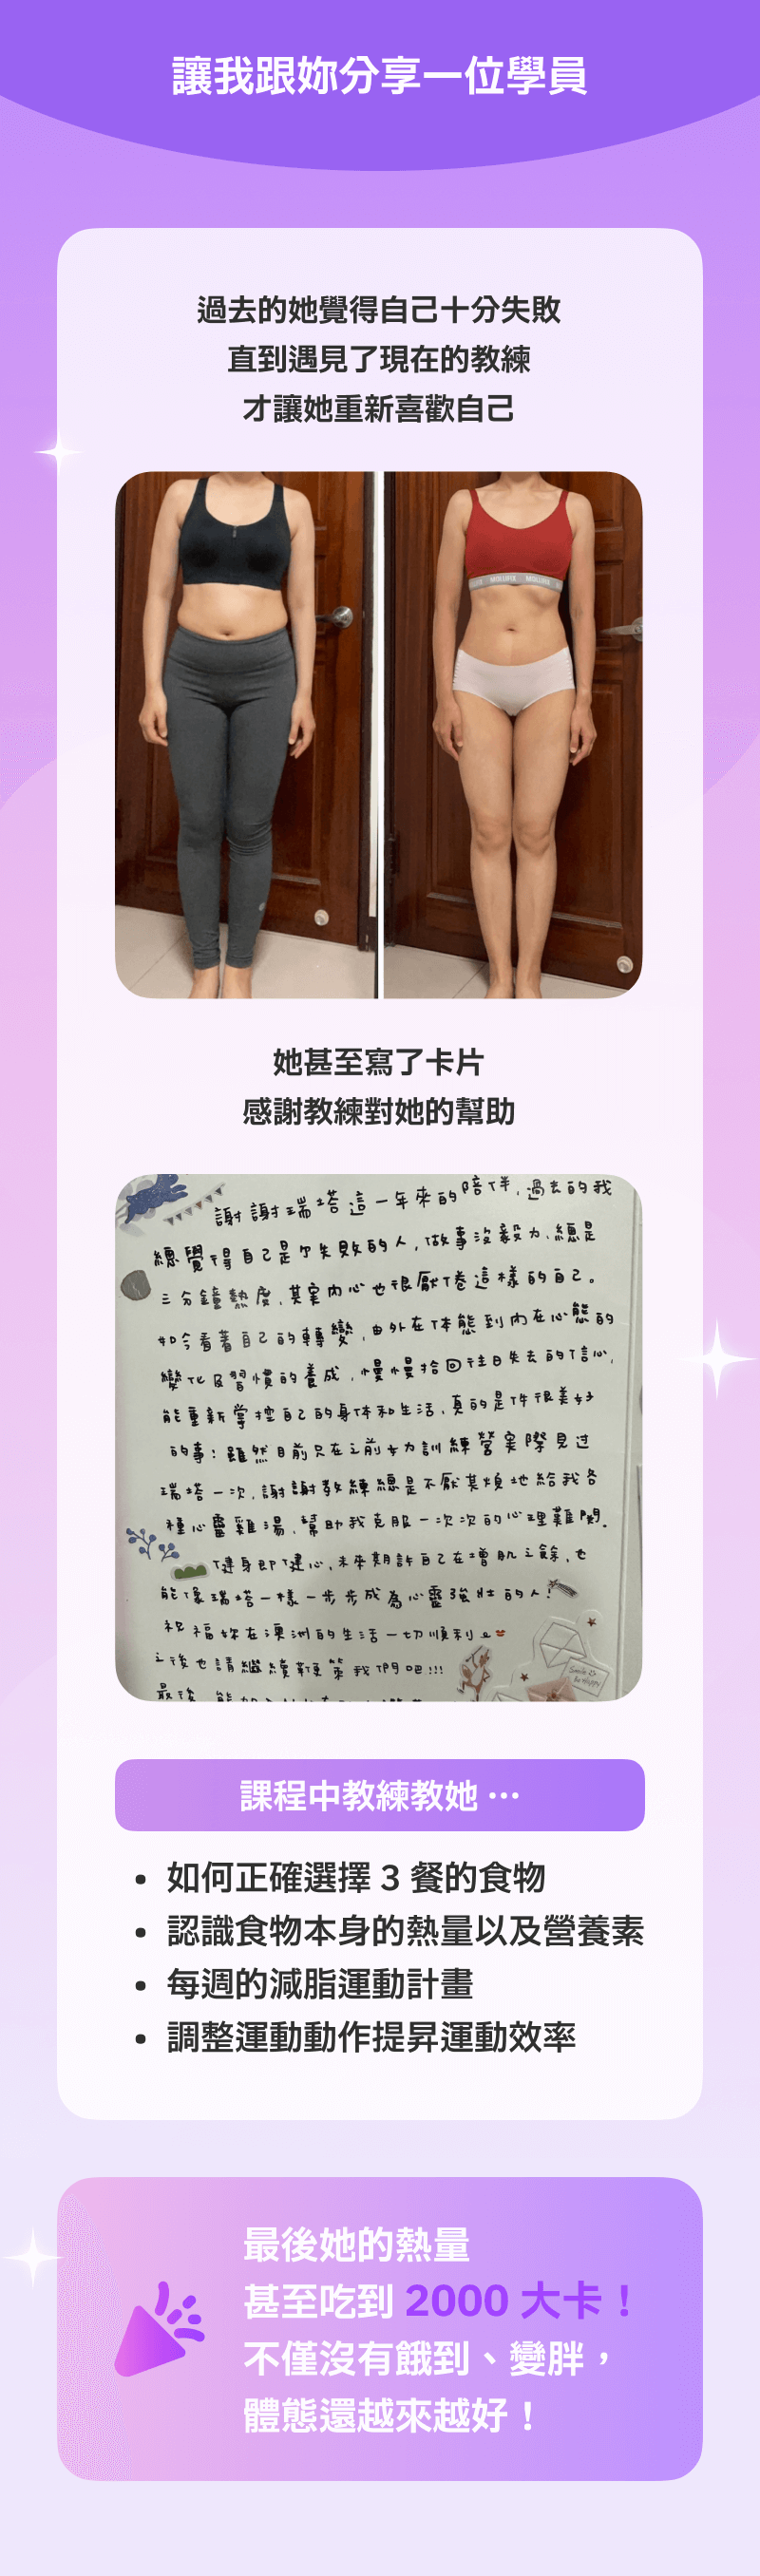 讓我跟妳分享一位學員
過去的她覺得自己十分失敗
直到遇見了現在的教練
才讓她重新喜歡自己
MOLLIFIX MOLLIFIX
她甚至寫了卡片
感謝教練對她的幫助
謝謝瑞塔這一年來的陪伴,過去的我
總覺得自己是個失敗的人,做事沒毅力、總是
三分鐘熱度,其實內心也很厭倦這樣的自己。
如今看著自己的轉變,由外在体態到內在心態的
變化及習慣的養成,慢慢拾回往日失去的信心,
能重新掌控自己的身体和生活,真的是件很美好
的事!雖然目前只在之前女力訓練營實際見过
瑞塔一次,謝謝教練總是不厭其煩地給我各
種心靈雞湯,幫助我克服一次次的心理難關。
健身即健心,未來期許自己在增肌之餘,也
能像瑞塔一樣一步步成為心靈強壯的人!
祝福妳在澳洲的生活一切順利
之後也請繼續鞭策我們吧!!!
Smile
Be Happy
最後
課程中教練教她 ⋯
• 如何正確選擇 3 餐的食物
• 認識食物本身的熱量以及營養素
• 每週的減脂運動計畫
• 調整運動動作提昇運動效率
最後她的熱量
甚至吃到 2000 大卡！
不僅沒有餓到、變胖，
體態還越來越好！